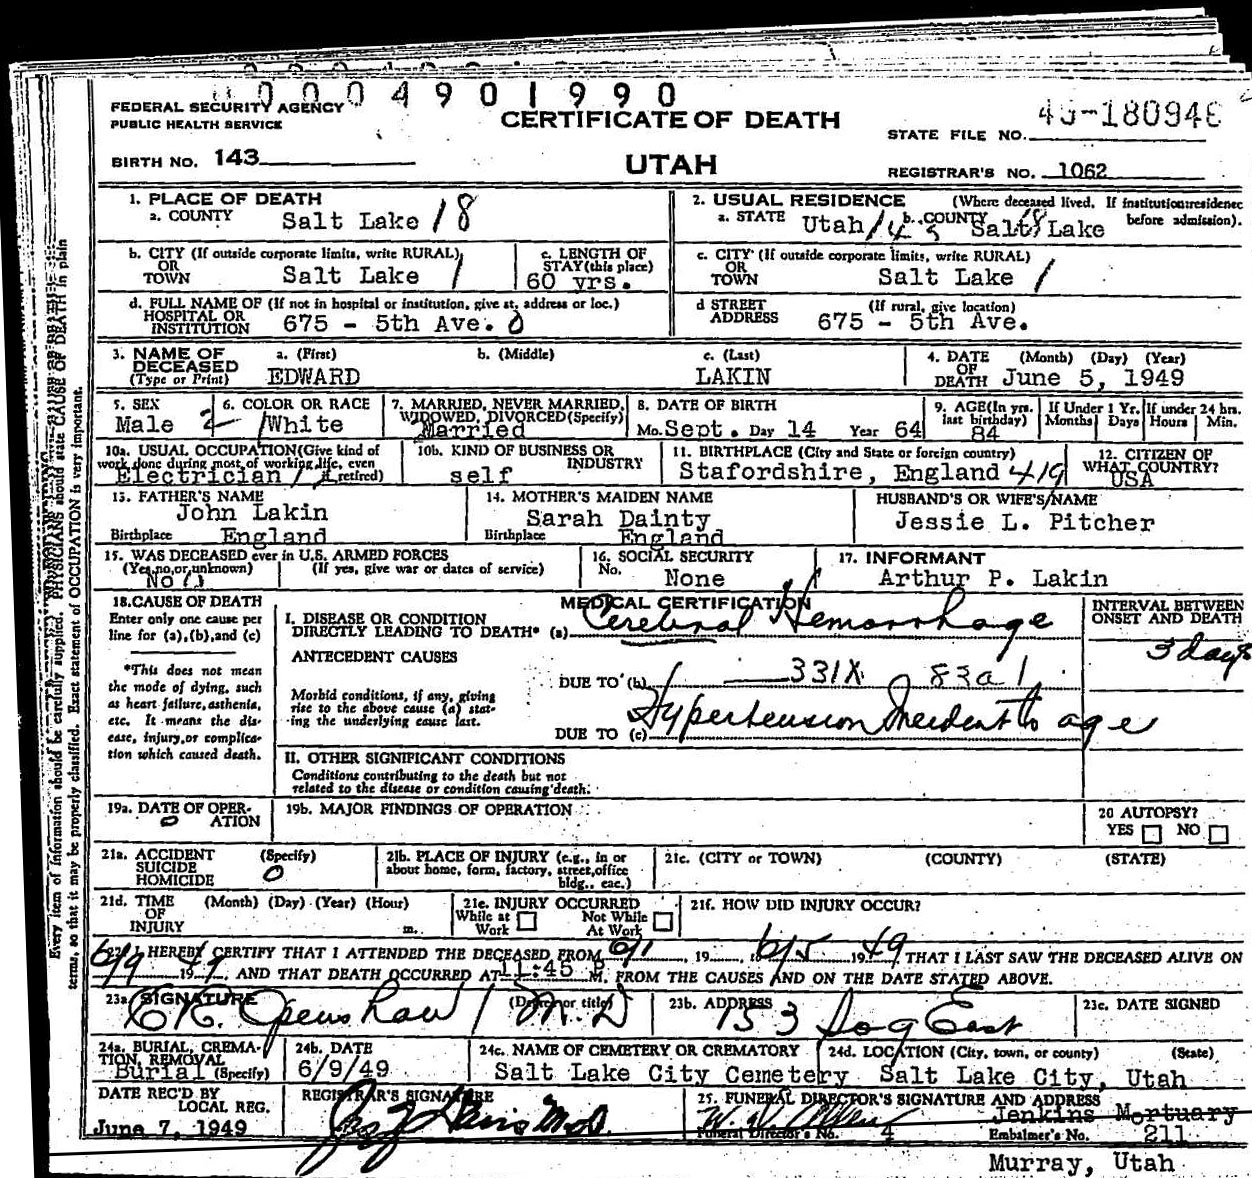 0004901990
FEDERAL SECURITY AGENCY
PUBLIC HEALTH SERVICE
CERTIFICATE OF DEATH
STATE FILE NO.
BIRTH NO. 143
UTAH
REGISTRAR'S NO. 1062
1. PLACE OF DEATH
a. COUNTY Salt Lake 18
2. USUAL RESIDENCE (Where deceased lived. If institution:residenc
a. STATE Utah b. COUNTY Salt Lake before admission).
b. CITY (If outside corporate limits, write RURAL)
OR
TOWN Salt Lake
c. LENGTH OF
STAY (this place)
60 yrs.
c. CITY (If outside corporate limits, write RURAL)
OR
TOWN Salt Lake
d. FULL NAME OF (If not in hospital or institution, give st, address or loc.)
HOSPITAL OR
INSTITUTION 675 - 5th Ave. 0
d STREET (If rural, give location)
ADDRESS 675 - 5th Ave.
3. NAME OF a. (First) b. (Middle) c. (Last)
DECEASED
(Type or Print) EDWARD LAKIN
4. DATE (Month) (Day) (Year)
OF
DEATH June 5, 1949
5. SEX
Male 2
6. COLOR OR RACE
White
7. MARRIED, NEVER MARRIED,
WIDOWED, DIVORCED (Specify)
Married
8. DATE OF BIRTH
Mo. Sept. Day 14 Year 64
9. AGE (In yrs.
last birthday)
84
If Under 1 Yr.
Months Days
If under 24 hrs.
Hours Min.
10a. USUAL OCCUPATION (Give kind of
work done during most of working life, even
Electrician if retired)
10b. KIND OF BUSINESS OR
INDUSTRY
self
11. BIRTHPLACE (City and State or foreign country)
Stafordshire, England 419
12. CITIZEN OF
WHAT COUNTRY?
USA
13. FATHER'S NAME
John Lakin
Birthplace England
14. MOTHER'S MAIDEN NAME
Sarah Dainty
Birthplace England
HUSBAND'S OR WIFE'S NAME
Jessie L. Pitcher
15. WAS DECEASED ever in U.S. ARMED FORCES
(Yes, no, or unknown) (If yes, give war or dates of service)
No
16. SOCIAL SECURITY
No. None
17. INFORMANT
Arthur P. Lakin
18. CAUSE OF DEATH
Enter only one cause per
line for (a), (b), and (c)
*This does not mean
the mode of dying, such
as heart failure, asthenia,
etc. It means the dis-
ease, injury, or complica-
tion which caused death.
MEDICAL CERTIFICATION
I. DISEASE OR CONDITION
DIRECTLY LEADING TO DEATH* (a) Cerebral Hemorrhage
ANTECEDENT CAUSES
DUE TO (b) 331X 83a1
Morbid conditions, if any, giving
rise to the above cause (a) stat-
ing the underlying cause last.
DUE TO (c) Hypertension Incident to age
INTERVAL BETWEEN
ONSET AND DEATH
3 days
II. OTHER SIGNIFICANT CONDITIONS
Conditions contributing to the death but not
related to the disease or condition causing death.
19a. DATE OF OPER-
ATION 0
19b. MAJOR FINDINGS OF OPERATION
20 AUTOPSY?
YES NO
21a. ACCIDENT (Specify)
SUICIDE
HOMICIDE 0
21b. PLACE OF INJURY (e.g., in or
about home, form, factory, street, office
bldg., eac.)
21c. (CITY or TOWN) (COUNTY) (STATE)
21d. TIME (Month) (Day) (Year) (Hour)
OF
INJURY m.
21e. INJURY OCCURRED
While at Work Not While At Work
21f. HOW DID INJURY OCCUR?
22. I HEREBY CERTIFY THAT I ATTENDED THE DECEASED FROM 6/1, 19 , 6/5 1949 THAT I LAST SAW THE DECEASED ALIVE ON
1949, AND THAT DEATH OCCURRED AT 11:45 P. M. FROM THE CAUSES AND ON THE DATE STATED ABOVE.
23a. SIGNATURE (Degree or title)
C R. Openshaw M.D
23b. ADDRESS
153 So 9 East
23c. DATE SIGNED
24a. BURIAL, CREMA-
TION, REMOVAL
Burial (Specify)
24b. DATE
6/9/49
24c. NAME OF CEMETERY OR CREMATORY
Salt Lake City Cemetery
24d. LOCATION (City, town, or county) (State)
Salt Lake City, Utah
DATE REC'D BY
LOCAL REG.
June 7, 1949
REGISTRAR'S SIGNATURE
M.D.
25. FUNERAL DIRECTOR'S SIGNATURE AND ADDRESS
Jenkins Mortuary
Funeral Director's No. 4 Embalmer's No. 211
Murray, Utah
Every item of information should be carefully supplied. PHYSICIANS should state CAUSE OF DEATH in plain
terms, so that it may be properly classified. Exact statement of OCCUPATION is very important.